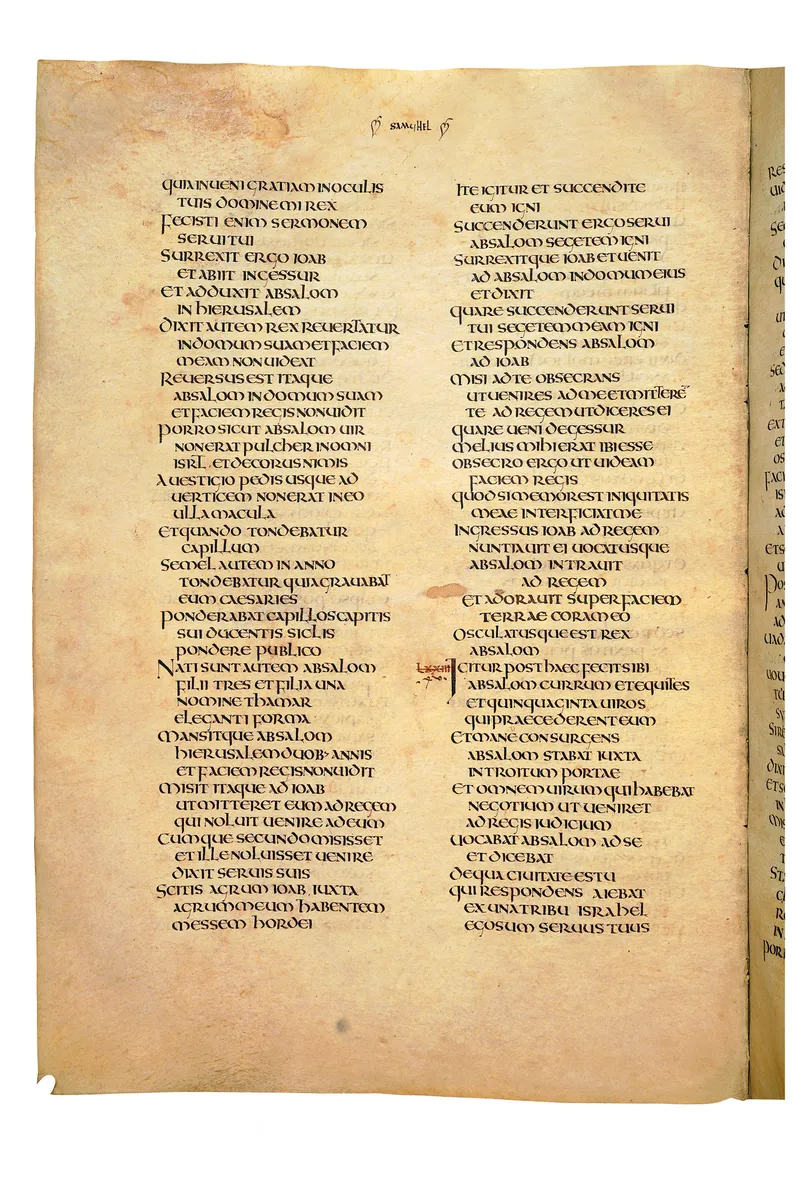 SAMUHEL
QUIA INUENI GRATIAM IN OCULIS
TUIS DOMINE MI REX
FECISTI ENIM SERMONEM
SERUI TUI
SURREXIT ERGO IOAB
ET ABIIT IN GESSUR
ET ADDUXIT ABSALOM
IN HIERUSALEM
DIXIT AUTEM REX REUERTATUR
IN DOMUM SUAM ET FACIEM
MEAM NON UIDEAT
REUERSUS EST ITAQUE
ABSALOM IN DOMUM SUAM
ET FACIEM REGIS NON UIDIT
PORRO SICUT ABSALOM UIR
NON ERAT PULCHER IN OMNI
ISRL ET DECORUS NIMIS
A UESTIGIO PEDIS USQUE AD
UERTICEM NON ERAT IN EO
ULLA MACULA
ET QUANDO TONDEBATUR
CAPILLUM
SEMEL AUTEM IN ANNO
TONDEBATUR QUIA GRAUABAT
EUM CAESARIES
PONDERABAT CAPILLOS CAPITIS
SUI DUCENTIS SICLIS
PONDERE PUBLICO
NATI SUNT AUTEM ABSALOM
FILII TRES ET FILIA UNA
NOMINE THAMAR
ELEGANTI FORMA
MANSITQUE ABSALOM
HIERUSALEM DUOB· ANNIS
ET FACIEM REGIS NON UIDIT
MISIT ITAQUE AD IOAB
UT MITTERET EUM AD REGEM
QUI NOLUIT UENIRE AD EUM
CUMQUE SECUNDO MISISSET
ET ILLE NOLUISSET UENIRE
DIXIT SERUIS SUIS
SCITIS AGRUM IOAB IUXTA
AGRUM MEUM HABENTEM
MESSEM HORDEI
ITE IGITUR ET SUCCENDITE
EUM IGNI
SUCCENDERUNT ERGO SERUI
ABSALOM SEGETEM IGNI
SURREXITQUE IOAB ET UENIT
AD ABSALOM IN DOMUM EIUS
ET DIXIT
QUARE SUCCENDERUNT SERUI
TUI SEGETEM MEAM IGNI
ET RESPONDENS ABSALOM
AD IOAB
MISI AD TE OBSECRANS
UT UENIRES AD ME ET MITTERE̅
TE AD REGEM UT DICERES EI
QUARE UENI DE GESSUR
MELIUS MIHI ERAT IBI ESSE
OBSECRO ERGO UT UIDEAM
FACIEM REGIS
QUOD SI MEMOR EST INIQUITATIS
MEAE INTERFICIAT ME
INGRESSUS IOAB AD REGEM
NUNTIAUIT EI UOCATUSQUE
ABSALOM INTRAUIT
AD REGEM
ET ADORAUIT SUPER FACIEM
TERRAE CORAM EO
OSCULATUSQUE EST REX
ABSALOM
IGITUR POST HAEC FECIT SIBI
ABSALOM CURRUM ET EQUITES
ET QUINQUAGINTA UIROS
QUI PRAECEDERENT EUM
ET MANE CONSURGENS
ABSALOM STABAT IUXTA
INTROITUM PORTAE
ET OMNEM UIRUM QUI HABEBAT
NEGOTIUM UT UENIRET
AD REGIS IUDICIUM
UOCABAT ABSALOM AD SE
ET DICEBAT
DE QUA CIUITATE ES TU
QUI RESPONDENS AIEBAT
EX UNA TRIBU ISRAHEL
EGO SUM SERUUS TUUS